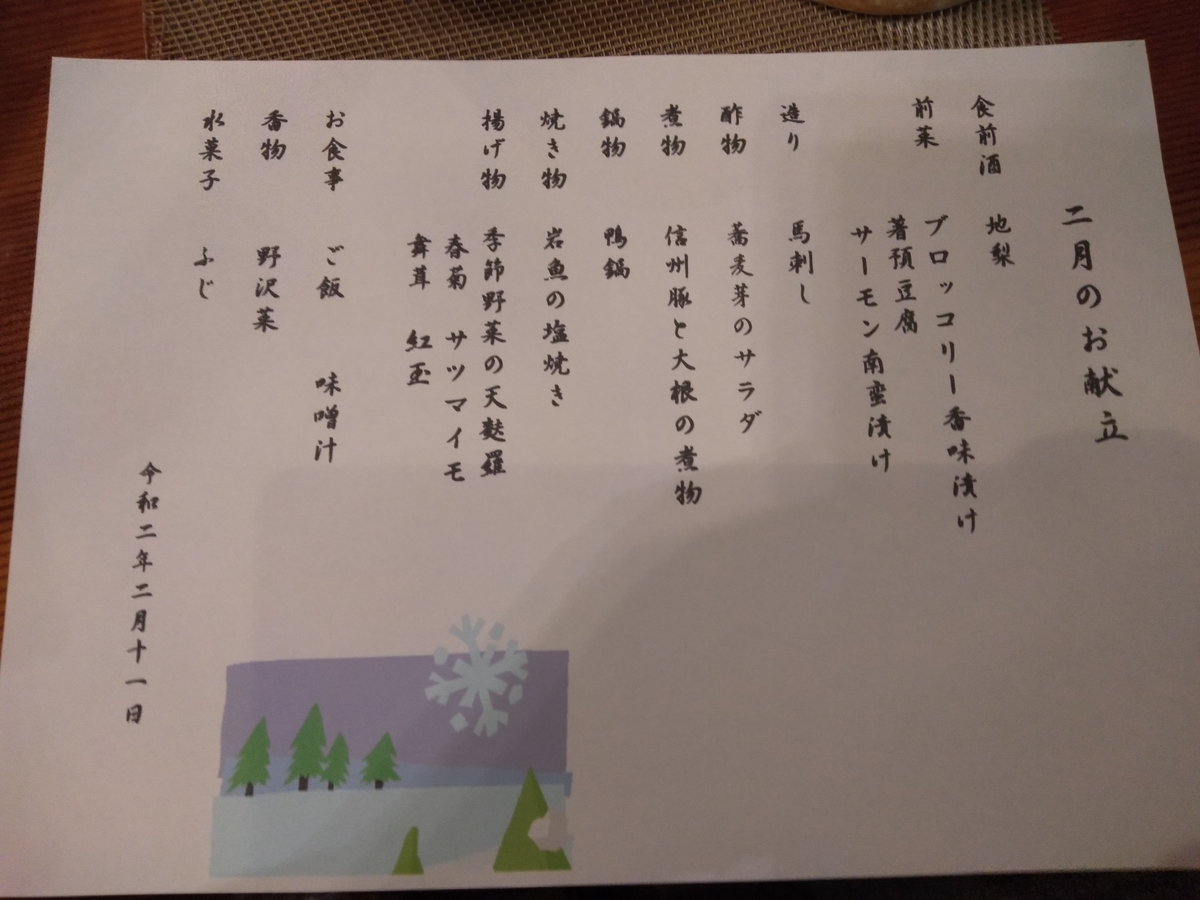 二月のお献立
食前酒　地梨
前菜　ブロッコリー香味漬け
著預豆腐
サーモン南蛮漬け
造り　馬刺し
酢物　蕎麦芽のサラダ
煮物　信州豚と大根の煮物
鍋物　鴨鍋
焼き物　岩魚の塩焼き
揚げ物　季節野菜の天麩羅
春菊　サツマイモ
舞茸　紅玉
お食事　ご飯　味噌汁
香物　野沢菜
水菓子　ふじ
令和二年二月十一日